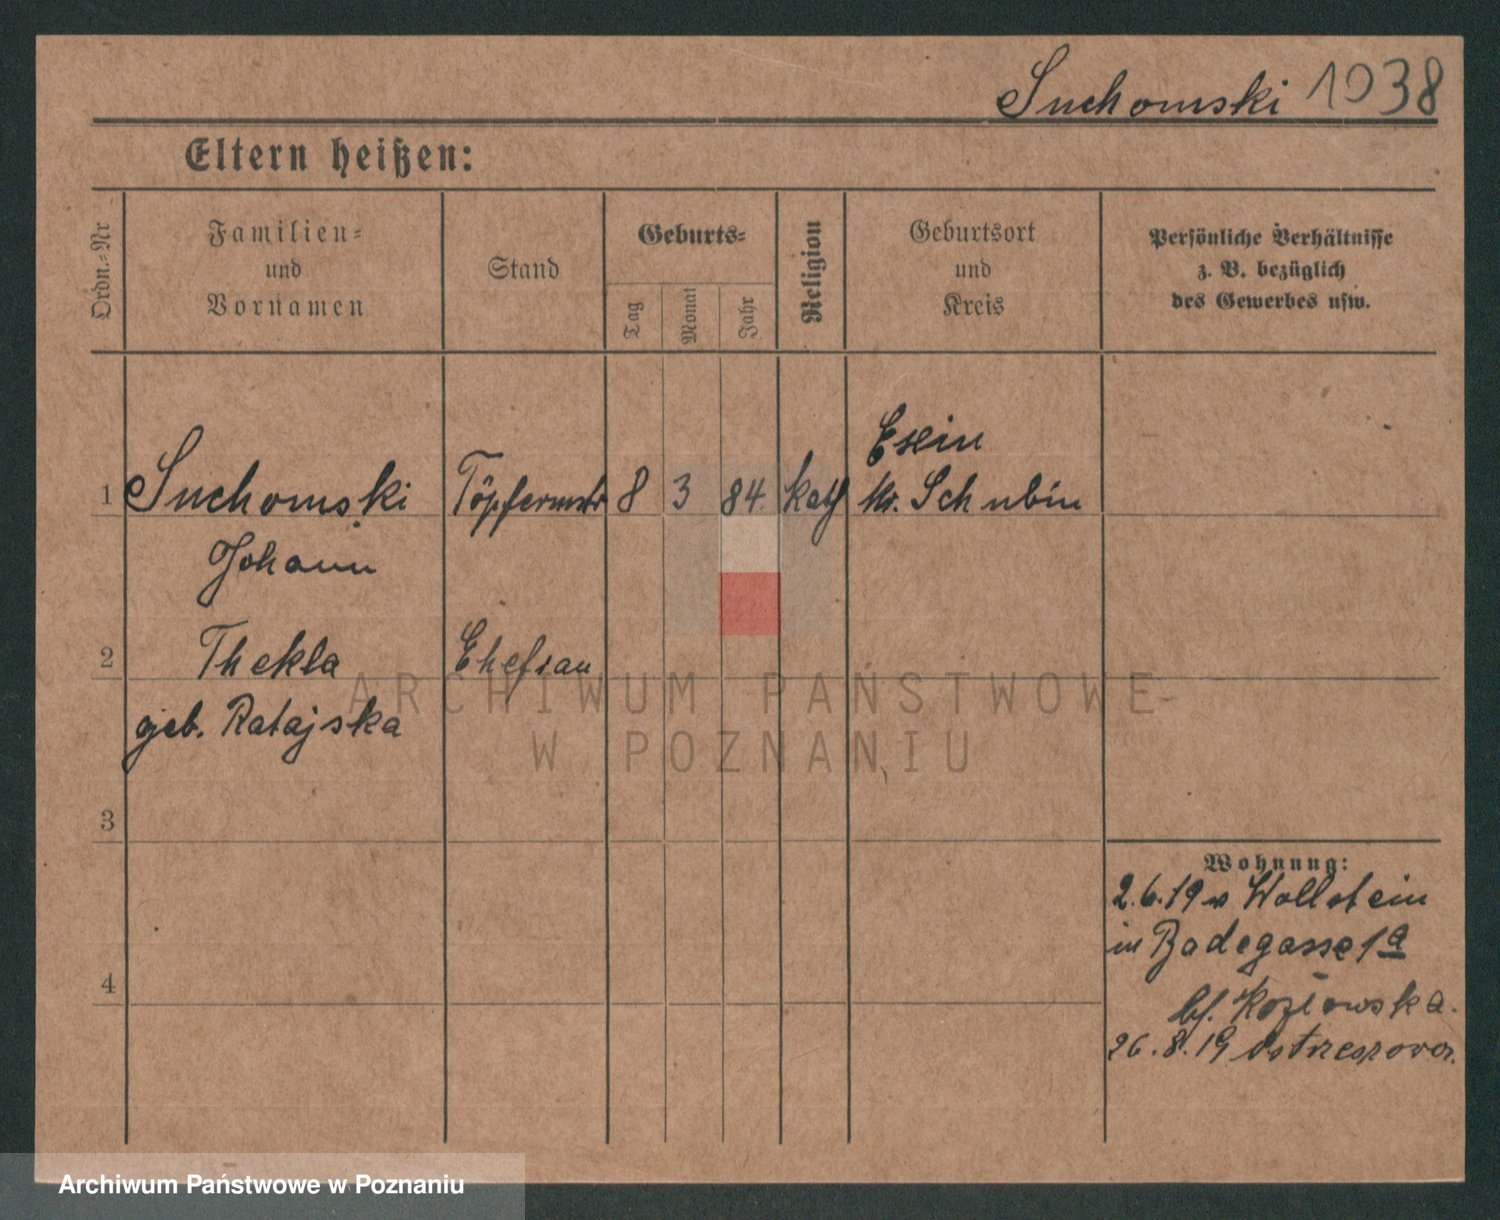 Suchomski 1038
Eltern heißen:
Ordn.=Nr
Familien=
und
Vornamen
Stand
Geburts=
Tag
Monat
Jahr
Religion
Geburtsort
und
Kreis
Persönliche Verhältnisse
z. B. bezüglich
des Gewerbes usw.
Exin
1 Suchomski Töpfermstr 8 3 84 kath Kr. Schubin
Johann
2 Thekla Ehefrau
geb. Ratajska
3
4
Wohnung:
2.6.19 v Wollstein
in Badegasse 1a
bf. Kozlowska.
26.8.19
ARCHIWUM PAŃSTWOWE
W POZNANIU
Archiwum Państwowe w Poznaniu